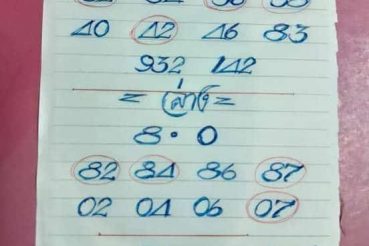 40 42 46 83
932 142
= ล่าง =
8 • 0
82 84 86 87
02 04 06 07